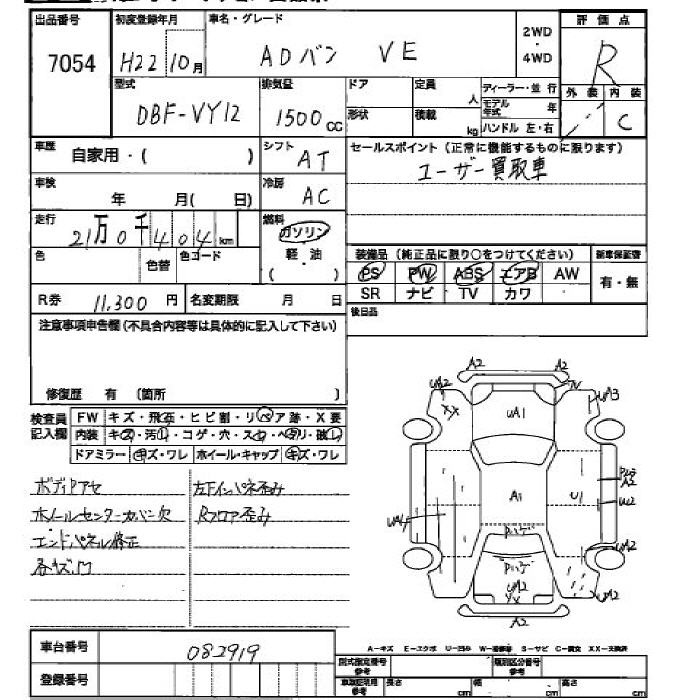 出品番号 初度登録年月 車名・グレード 評価点
7054 H22 10月 ADバン VE 2WD・4WD R
型式 排気量 ドア 定員 人 ディーラー・並行 外装 内装
DBF-VY12 1500cc 形状 積載 kg モデル年式 年 ハンドル 左・右 C
車歴 自家用・( ) シフト AT セールスポイント(正常に機能するものに限ります)
ユーザー買取車
車検 年 月( 日) 冷房 AC
走行 21万0千404km 燃料 ガソリン
色 色替 色コード 軽・油 ( )
装備品(純正品に限り○をつけてください) 新車保証書
PS PW ABS エアB AW 有・無
SR ナビ TV カワ
R券 11,300円 名変期限 月 日
後日品
注意事項申告欄(不具合内容等は具体的に記入して下さい)
修復歴 有 (箇所 )
検査員記入欄 FW キズ・飛石・ヒビ割・リペア跡・X要
内装 キズ・汚れ・コゲ・穴・スレ・ヘタリ・破れ
ドアミラー キズ・ワレ ホイール・キャップ キズ・ワレ
ボディヤケ 左Fインパネ歪み
ホイールセンターカバー欠 Rフロア歪み
エンドパネル修正
各キズ凹
A2 A2
UA2 XX UA1 TV UA3
UA4 A1 U1 A2 U2
Pハゲ
Pハゲ
UA2 XX UA2 UA2
A2
A-キズ E-エクボ U-凹み W-補修跡 S-サビ C-腐食 XX-交換済
車台番号 082919
登録番号
型式指定番号 参考 類別区分番号 参考
長さ cm 幅 cm 高さ cm